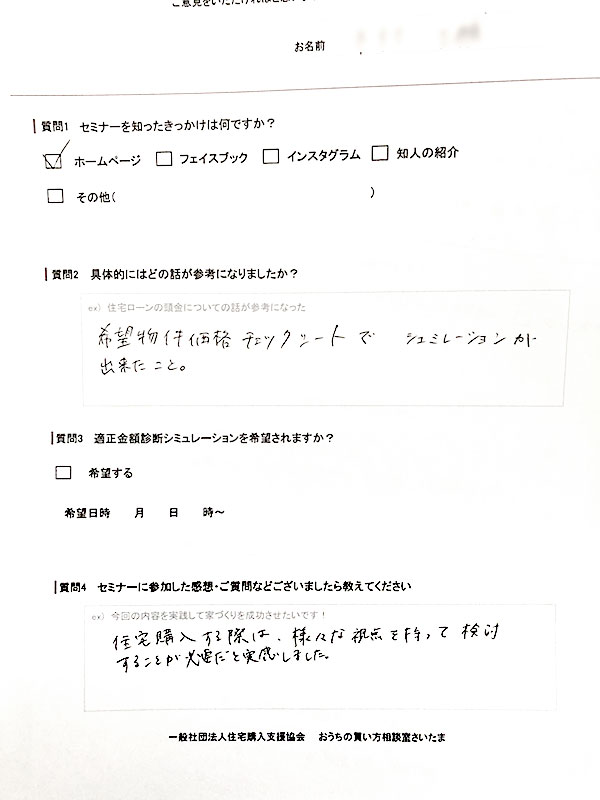 ご意見をいただければと思い
お名前
質問1 セミナーを知ったきっかけは何ですか?
ホームページ フェイスブック インスタグラム 知人の紹介
その他( )
質問2 具体的にはどの話が参考になりましたか?
ex) 住宅ローンの頭金についての話が参考になった
希望物件価格チェックシートで シュミレーションが
出来たこと。
質問3 適正金額診断シミュレーションを希望されますか?
希望する
希望日時 月 日 時~
質問4 セミナーに参加した感想・ご質問などございましたら教えてください
ex) 今回の内容を実践して家づくりを成功させたいです!
住宅購入する際は、様々な視点を持って検討
することが必要だと実感しました。
一般社団法人住宅購入支援協会 おうちの買い方相談室さいたま